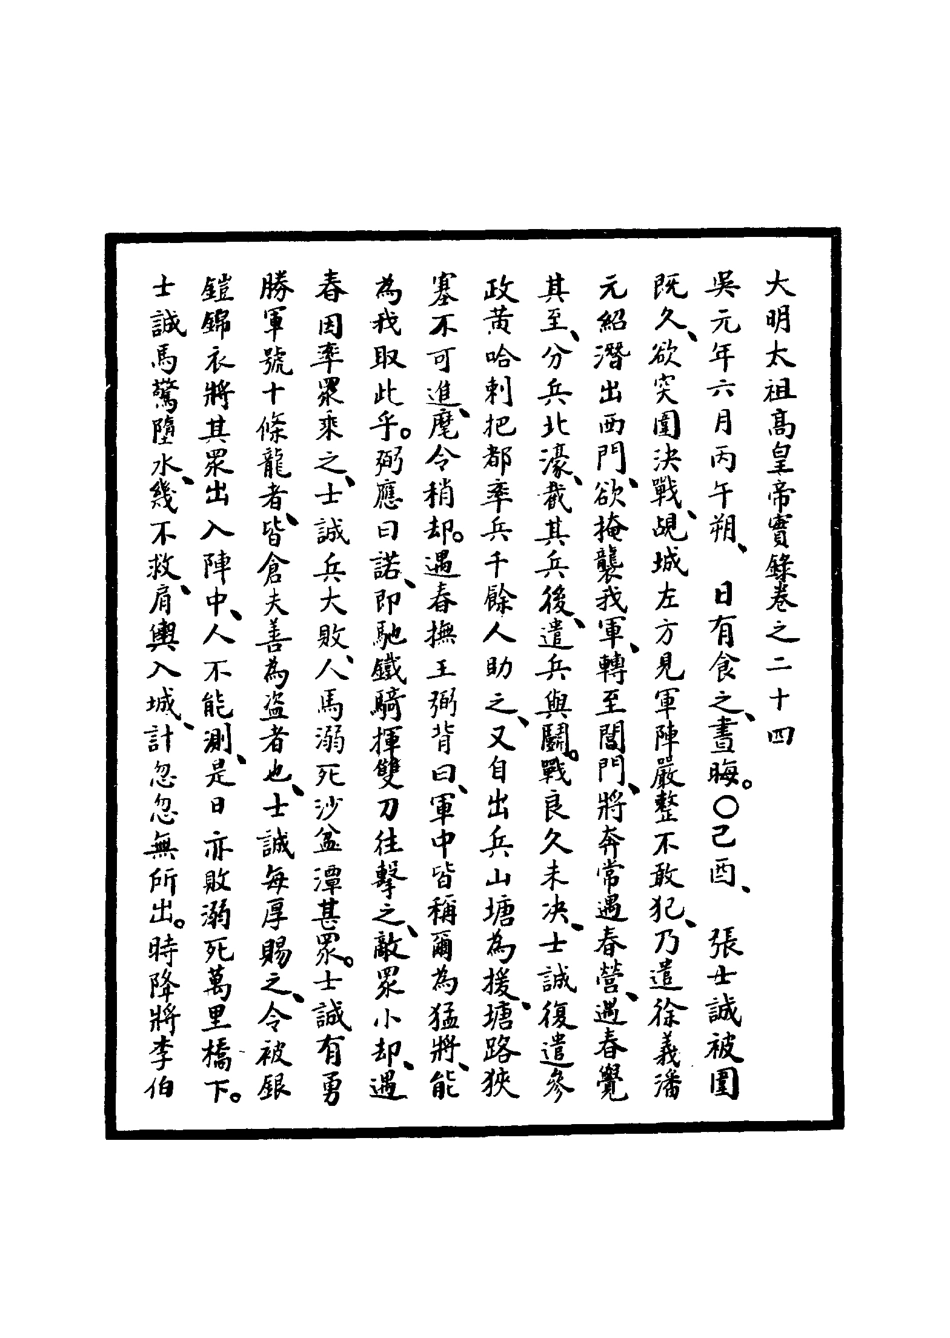 大明太祖高皇帝實錄卷之二十四
吳元年六月丙午朔、日有食之、晝晦。○己酉、張士誠被圍
既久、欲突圍決戰、覘城左方見軍陣嚴整不敢犯、乃遣徐義潘
元紹潛出西門、欲掩襲我軍、轉至閶門、將奔常遇春營、遇春覺
其至、分兵北濠、截其兵後、遣兵與鬭。戰良久未決、士誠復遣參
政黃哈剌把都率兵千餘人助之、又自出兵山塘為援、塘路狹
塞不可進、麾令稍却。遇春撫王弼背曰、軍中皆稱爾為猛將、能
為我取此乎。弼應曰諾、即馳鐵騎揮雙刀往擊之、敵眾小却、遇
春因率眾乘之、士誠兵大敗、人馬溺死沙盆潭甚眾。士誠有勇
勝軍號十條龍者、皆倉夫善為盜者也、士誠每厚賜之、令被銀
鎧錦衣將其眾出入陣中、人不能測、是日亦敗溺死萬里橋下。
士誠馬驚墮水、幾不救、肩輿入城、計忽忽無所出。時降將李伯